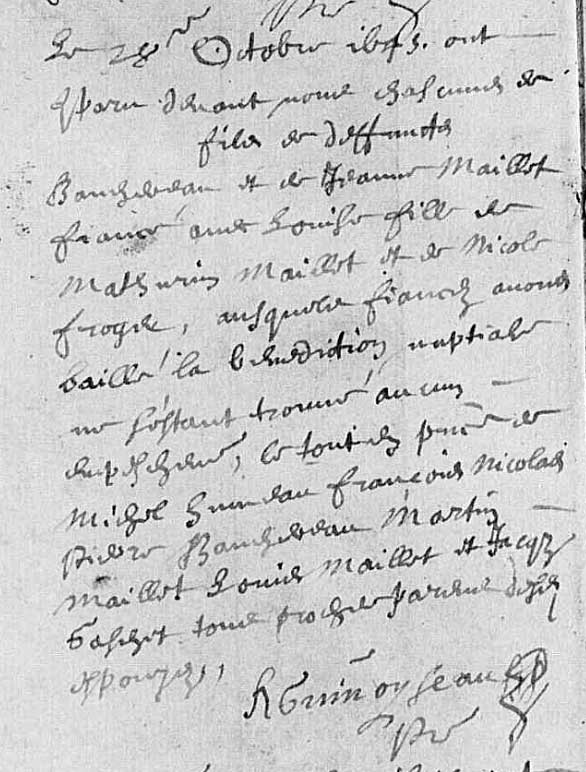 Le 28me Octobre 1645. ont
Comparu devant nous chascuns de
fils de deffuncts
Bauchereau et de Jeanne Maillet
fiancé avec Louise fille de
Mathurin Maillet et de Nicole
froger, ausquels fiancez avons
baillé la benediction nuptiale
ne s'estant trouvé aucun
empeschemt, le tout en pnce de
Michel huneau françois Nicolas
pierre Bauchereau Martin
Maillet Louis Maillet et Jacqs
Gaschet tous proches parens desds
espouzes,
R Grimoyseau
pbr